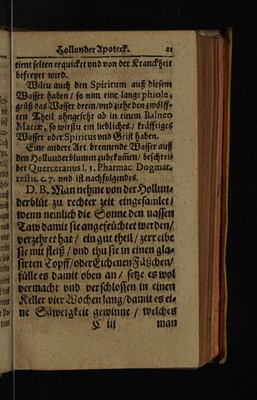 Hollunder Apoteck. 21
tient selten erquicket vnd von der Kranckheit
befreyet wird.
Wiltu auch den Spiritum auß diesem
Wasser haben / so nim eine lange phiole,
geuß das Wasser drein / vnd ziehe den zwölff-
ten Theil ohngefehr ab in einem Balneo
Mariæ, so wirstu ein liebliches / kräfftiges
Wasser oder Spiritus vnd Geist haben.
Eine andere Art brennende Wasser auß
den Hollunderblumen zubekom̃en / beschrei-
bet Quercetanus l. 1. Pharmac. Dogmat.
restit. c. 7. vnd ist nachfolgendes.
D. B. Man nehme von der Hollun-
derblüt zu rechter zeit eingesamlet /
wenn nemlich die Sonne den nassen
Taw damit sie angefeüchtet werden /
verzehret hat / ein gut theil / zerreibe
sie mit fleiß / vnd thu sie in einen gla-
surten Topff / oder Eichenen Fäßchen /
fülle es damit oben an / setze es wol
vermacht vnd verschlossen in einen
Keller vier Wochen lang / damit es ei-
ne Säweigkeit gewinne / welches
C iij man